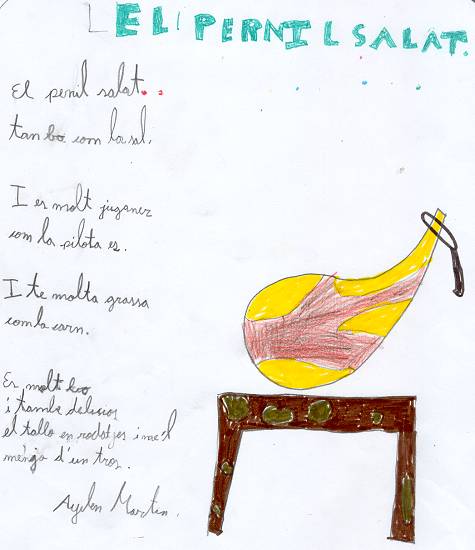 EL PERNIL SALAT.
El penil salat...
tan bo com la sal.
I es molt juganer
com la pilota es.
I te molta grassa
com la carn.
Es molt bo
i tambe delicios
el tallo en rodotjes i me'l
menja d'un tros.
Ayelen Martin.